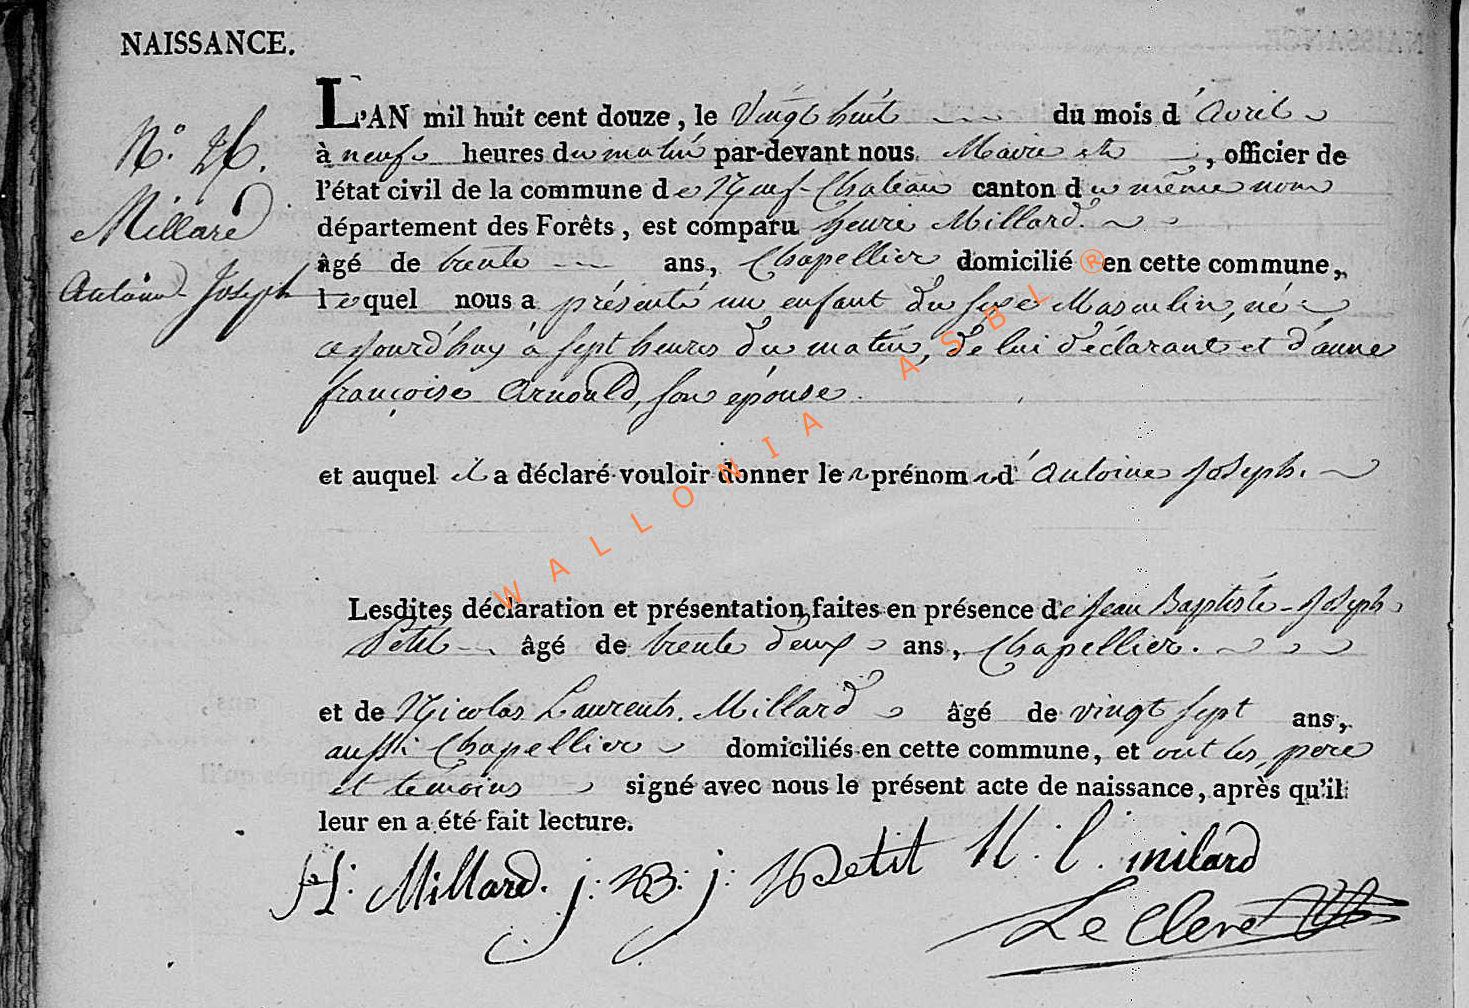 NAISSANCE.
N.° 26.
Millard
Antoine Joseph
L'AN mil huit cent douze, le Vingt huit du mois d'avril
à neuf heures du matin par-devant nous Maire &tc, officier de
l'état civil de la commune de Neuf-Château canton du même nom
département des Forêts, est comparu henri Millard.
âgé de trente ans, Chapellier domicilié en cette commune,
lequel nous a présenté un enfant du sexe Masculin, né
cejourd'huy à sept heures du matin, de lui déclarant et d'anne
françoise Arnould, son épouse.
et auquel il a déclaré vouloir donner les prénoms d'antoine Joseph.
Lesdites déclaration et présentation faites en présence de Jean Baptiste-Joseph
Petit âgé de trente deux ans, Chapellier.
et de Nicolas Laurents. Millard âgé de vingt sept ans,
aussi Chapellier domiciliés en cette commune, et ont les père
et témoins signé avec nous le présent acte de naissance, après qu'il
leur en a été fait lecture.
H. Millard. j: B: j: Petit N. l. milard
Le Clerc
® WALLONIA ASBL